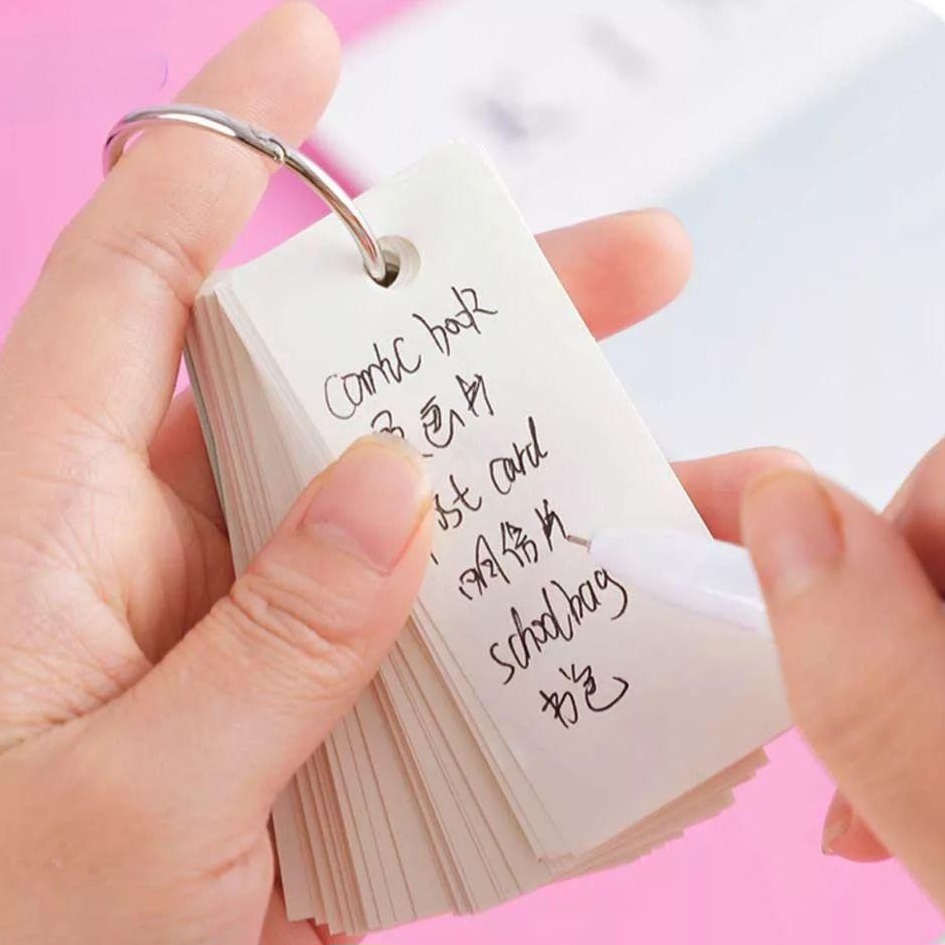 comic book
色片
ost card
明信片
schoolbag
书包